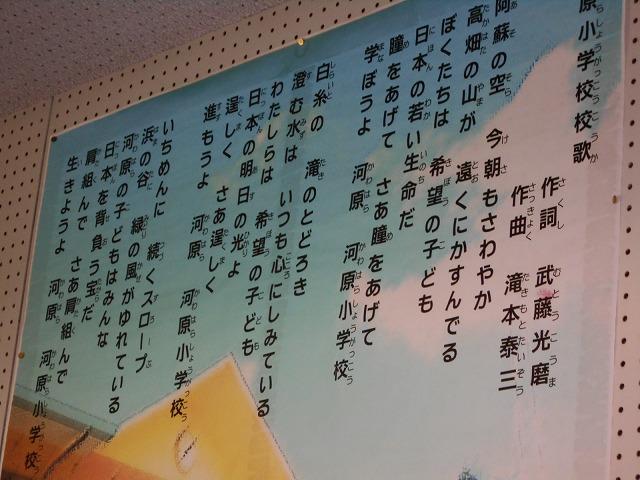 原小学校校歌
作詞 武藤光磨
作曲 滝本泰三
阿蘇の空 今朝もさわやか
高畑の山が 遠くにかすんでる
ぼくたちは 希望の子ども
日本の若い生命だ
瞳をあげて さあ瞳をあげて
学ぼうよ 河原 河原小学校
白糸の 滝のとどろき
澄む水は いつも心にしみている
わたしらは 希望の子ども
日本の明日の光よ
逞しく さあ逞しく
進もうよ 河原 河原小学校
いちめんに 続くスロープ
浜の谷 緑の風がゆれている
河原の子どもはみんな
日本を背負う宝だ
肩組んで さあ肩組んで
生きようよ 河原 河原小学校